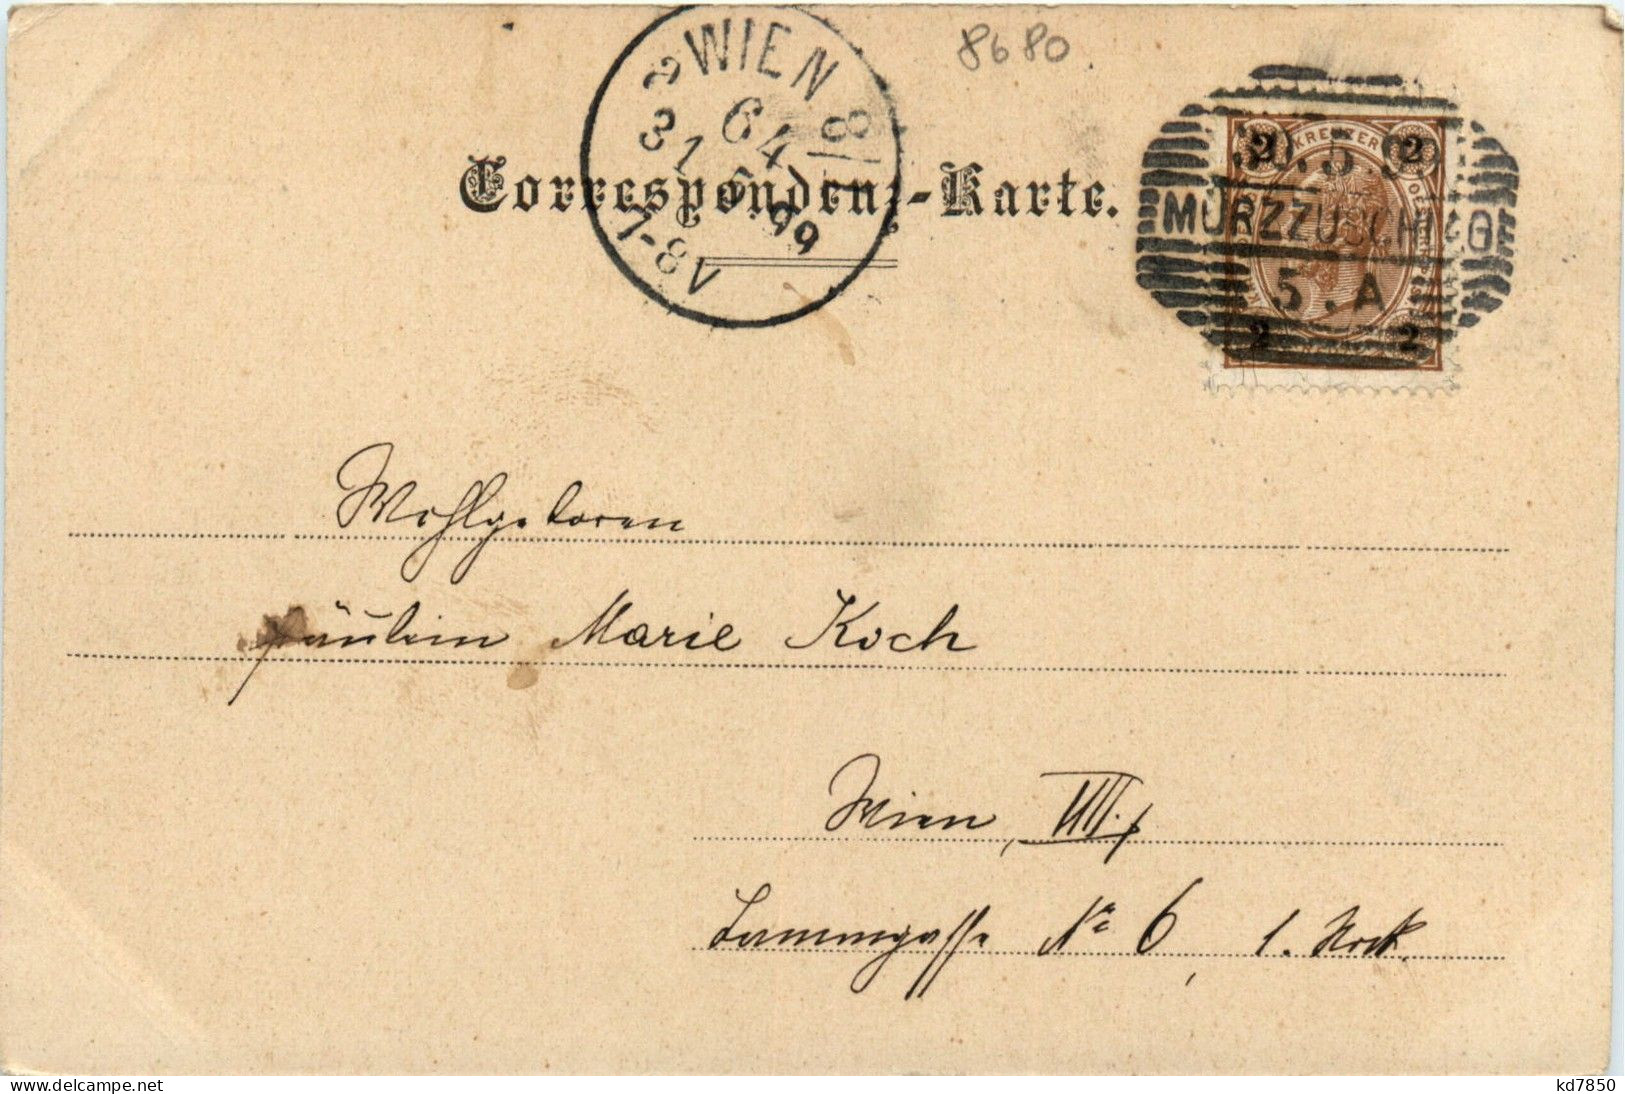 8680.
WIEN 8/1
64
31 5 99
7-8.V
Correspondenz-Karte.
2 KREUZER 2
30.5.99
MÜRZZUSCHLAG
5.A
2 2
Wohlgeboren
Fräulein Marie Koch
Wien, VIII./
Lammgasse No 6, 1. Stock.
kd7850